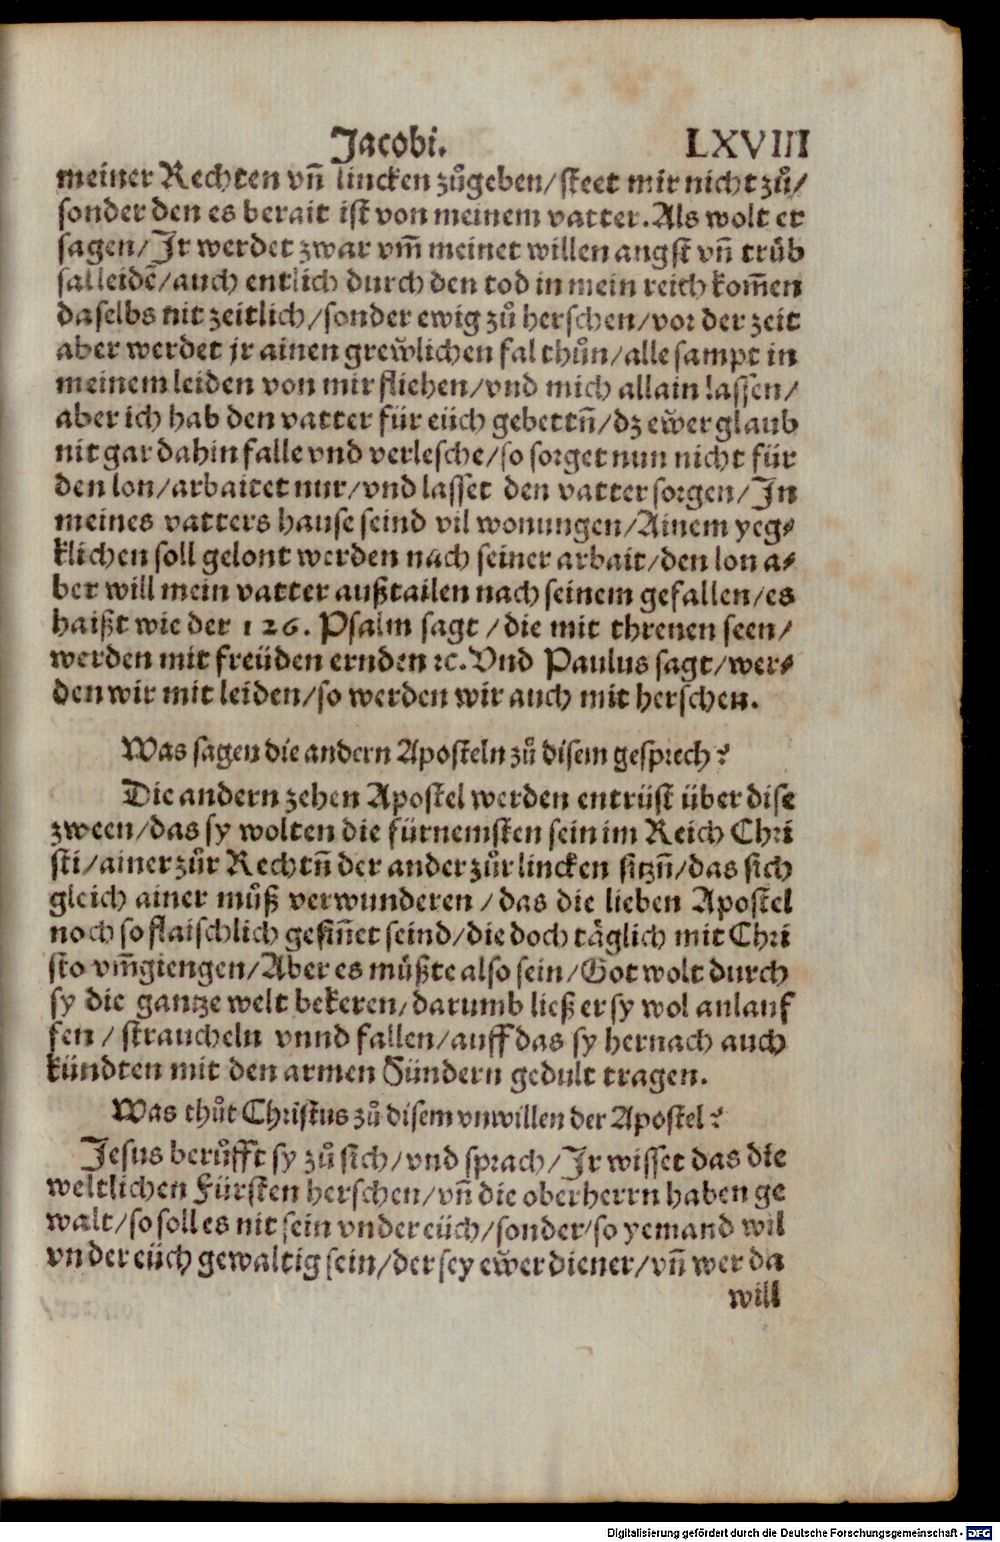 Jacobi. LXVIII
meiner Rechten vñ lincken zůgeben/steet mir nicht zů/
sonder den es berait ist von meinem vatter. Als wolt er
sagen/Jr werdet zwar vm̃ meinet willen angst vñ trůb
sal leidẽ/auch entlich durch den tod in mein reich kom̃en
daselbs nit zeitlich/sonder ewig zů herschen/vor der zeit
aber werdet jr ainen grew̃lichen fal thůn/alle sampt in
meinem leiden von mir fliehen/vnd mich allain lassen/
aber ich hab den vatter für eüch gebettñ/dz ew̃er glaub
nit gar dahin falle vnd verlesche/so sorget nun nicht für
den lon/arbaitet nur/vnd lasset den vatter sorgen/Jn
meines vatters hause seind vil wonungen/Ainem yeg⸗
klichen soll gelont werden nach seiner arbait/den lon a⸗
ber will mein vatter außtailen nach seinem gefallen/es
haißt wie der 126. Psalm sagt /die mit threnen seen/
werden mit freüden ernden ꝛc. Vnd Paulus sagt/wer⸗
den wir mit leiden/so werden wir auch mit herschen.
Was sagen die andern Aposteln zů disem gesprech?
Die andern zehen Apostel werden entrüst über dise
zween/das sy wolten die fürnemsten sein im Reich Chri
sti/ainer zůr Rechtñ der ander zůr lincken sitzñ/das sich
gleich ainer můß verwunderen /das die lieben Apostel
noch so flaischlich gesiñet seind/die doch täglich mit Chri
sto vm̃giengen/Aber es müßte also sein/Got wolt durch
sy die gantze welt bekeren/darumb ließ er sy wol anlauf
fen / straucheln vnnd fallen/auff das sy hernach auch
kündten mit den armen Sündern gedult tragen.
Was thůt Christus zů disem vnwillen der Apostel?
Jesus berůfft sy zů sich/vnd sprach/Jr wisset das die
weltlichen Fürsten herschen/vñ die oberherrn haben ge
walt/so soll es nit sein vnder eüch/sonder/so yemand wil
vnder eüch gewaltig sein/der sey ew̃er diener/vñ wer da
will
Digitalisierung gefördert durch die Deutsche Forschungsgemeinschaft - DFG